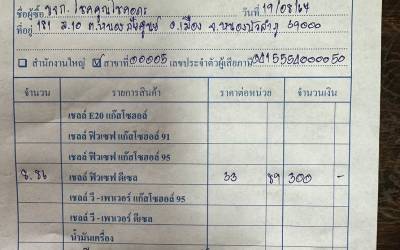 ชื่อผู้ซื้อ หจก. โชคคูณโชคถาวร วันที่ 19/08/64
ที่อยู่ 181 ม.10 ต.หนองภัยศูนย์ อ.เมือง จ.หนองบัวลำภู 39000
สำนักงานใหญ่ ☑ สาขาที่ 00005 เลขประจำตัวผู้เสียภาษี
จำนวน รายการสินค้า ราคาต่อหน่วย จำนวนเงิน
เชลล์ E20 แก๊สโซฮอล์
เชลล์ ฟิวเซฟ แก๊สโซฮอล์ 91
เชลล์ ฟิวเซฟ แก๊สโซฮอล์ 95
8.86 เชลล์ ฟิวเซฟ ดีเซล 33 89 300 -
เชลล์ วี - เพาเวอร์ แก๊สโซฮอล์ 95
เชลล์ วี - เพาเวอร์ ดีเซล
น้ำมันเครื่อง